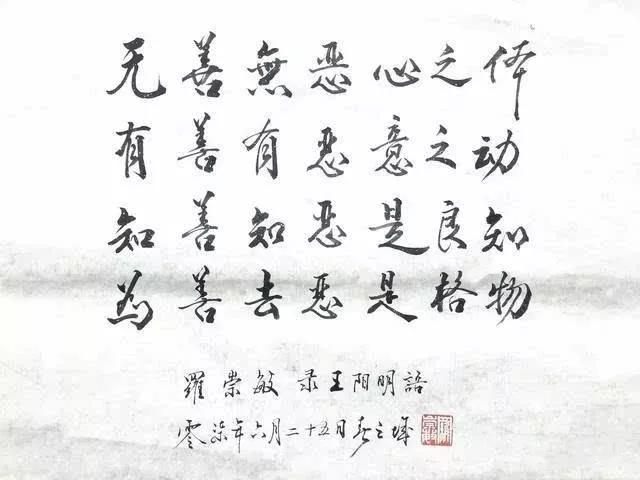 无善無恶心之体
有善有恶意之动
知善知恶是良知
為善去恶是格物
羅崇敏录王阳明語
零柒年六月二十五日春之城